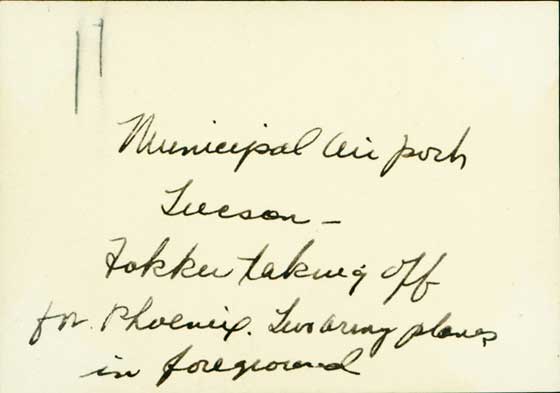 Municipal Air port
Tucson -
Fokker taking off
for Phoenix. Two army planes
in foreground